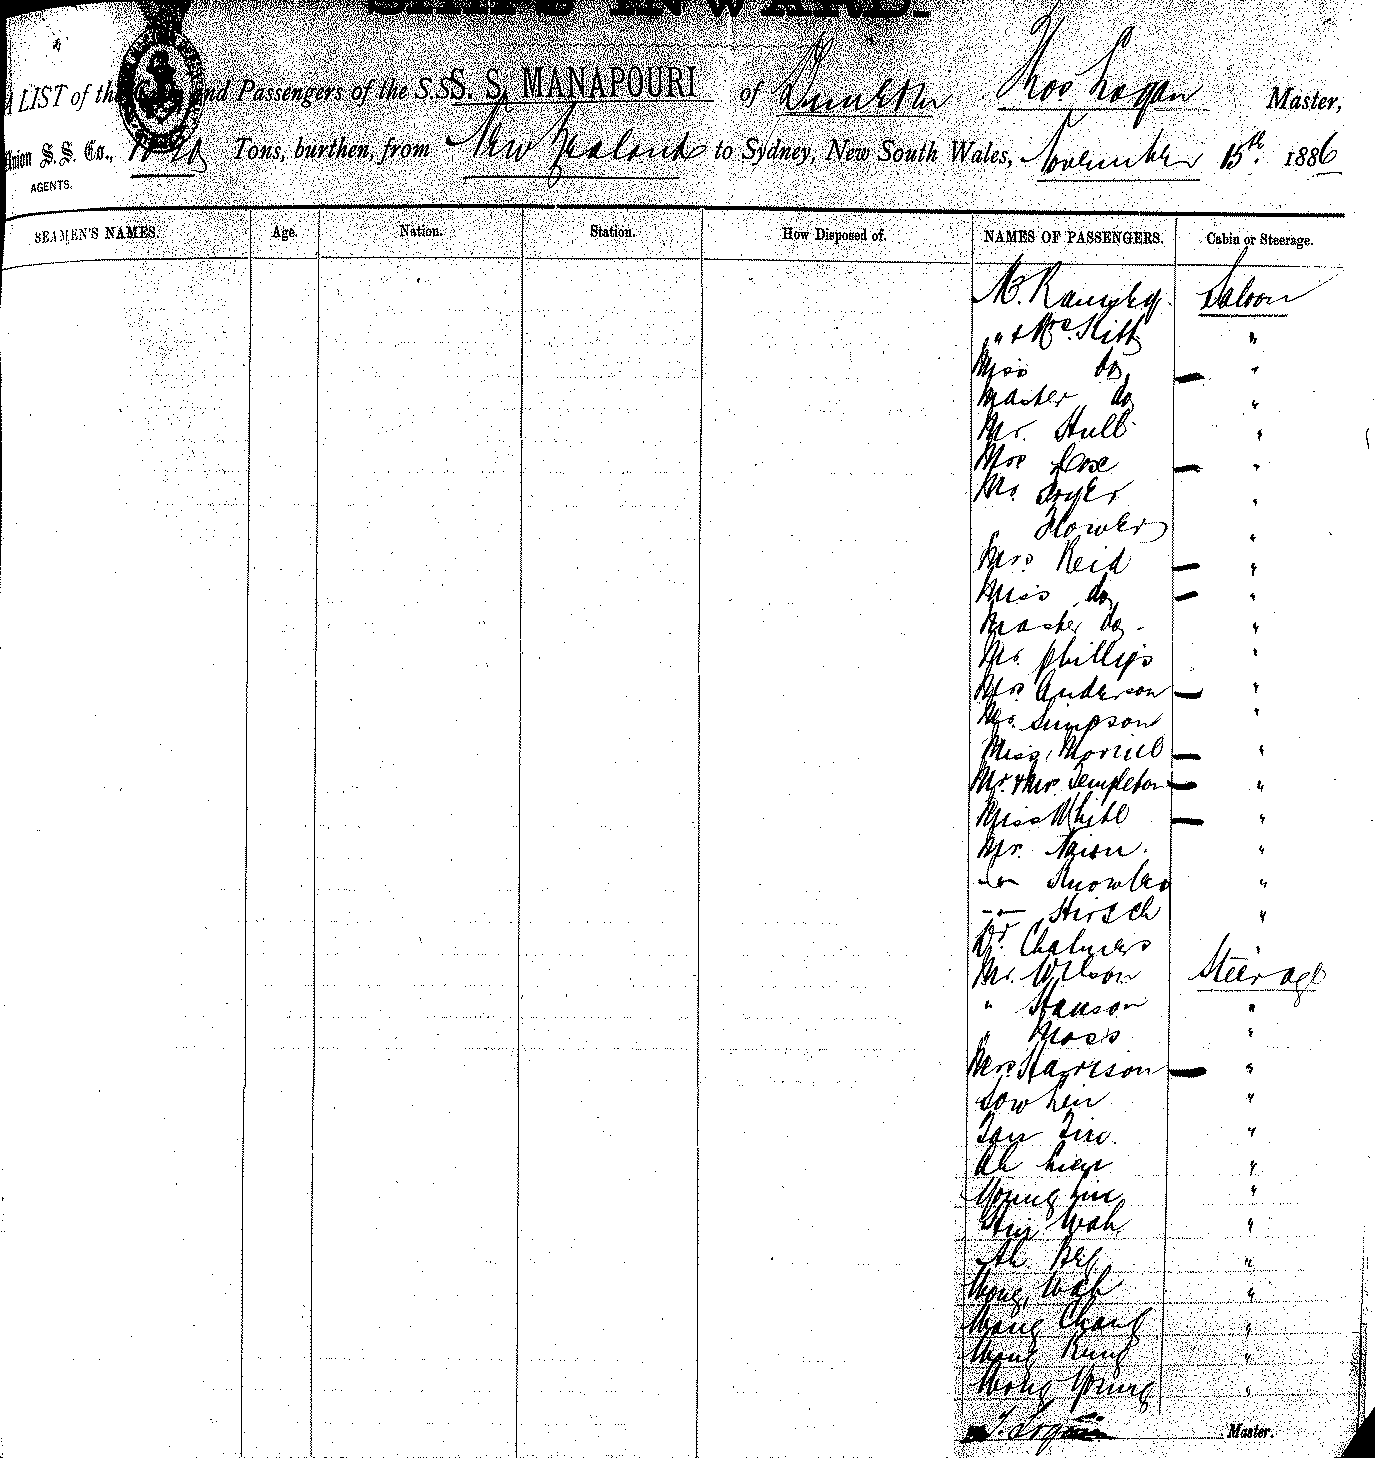 SHIPS INWARD.
A LIST of the Crew and Passengers of the S.S. S. S. MANAPOURI of Dunedin Thos Logan Master,
Union S.S. Co., Tons, burthen, from New Zealand to Sydney, New South Wales, November 15th 1886
AGENTS.
SEAMEN'S NAMES. Age. Nation. Station. How Disposed of. NAMES OF PASSENGERS. Cabin or Steerage.
Mr. Saloon
" & Mrs. Kitt "
Miss do "
Master do "
Mr. Hull "
Mrs "
Mr Dryer "
Flower "
Mrs Reid "
Miss do "
Master do "
Mr. Phillips "
Mrs Anderson "
Mr. Simpson "
Miss "
Mr. & Mrs. Templeton "
Miss White "
Mr. "
-"- Knowles "
-"- Hirsch "
Dr. Chalmers "
Mr. Wilson Steerage
" Hanson "
" Moss "
Mrs Harrison "
"
"
Ah "
Young "
Wah "
Ah "
Wong Wah "
Wong Chang "
Wong Kung "
Wong Young "
T. Logan Master.